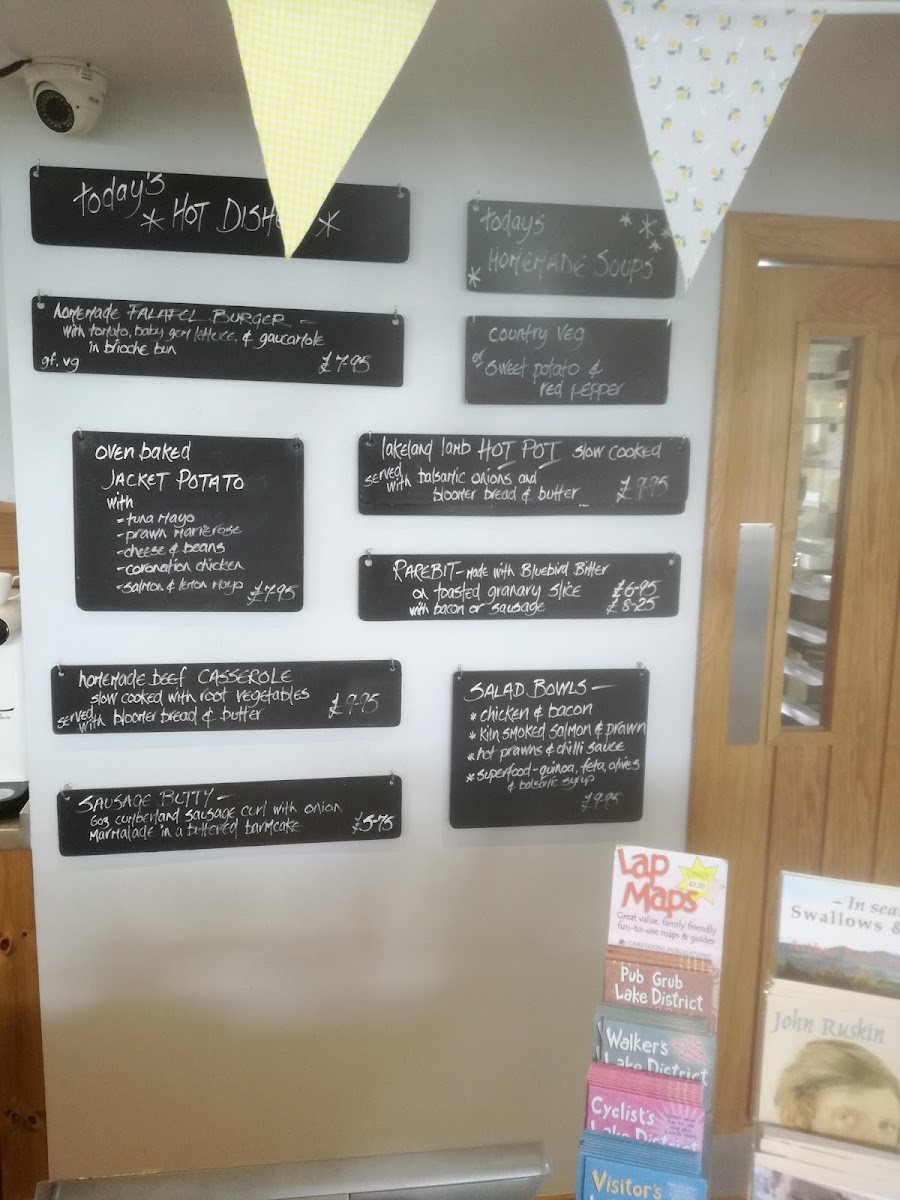 today's
* HOT DISH *
homemade FALAFEL BURGER -
with tomato, baby gem lettuce, & gaucamole
in brioche bun
gf. vg £7-95
oven baked
JACKET POTATO
with
- tuna mayo
- prawn marierose
- cheese & beans
- coronation chicken
- salmon & lemon mayo
£7.95
homemade beef CASSEROLE
slow cooked with root vegetables
served with bloomer bread & butter £9-95
SAUSAGE BUTTY -
6oz cumberland sausage curl with onion
marmalade in a buttered barmcake £5-75
todays
HOMEMADE SOUPS
country veg
or sweet potato &
red pepper
lakeland lamb HOT POT slow cooked
served with balsamic onions and
bloomer bread & butter £9-95
RAREBIT - made with Bluebird Bitter
on toasted granary slice £6-95
with bacon or sausage £8-25
SALAD BOWLS -
* chicken & bacon
* kiln smoked salmon & prawn
* hot prawns & chilli sauce
* superfood - quinoa, feta, olives
& balsamic syrup
£9.95
Lap
Maps
ONLY
£2.20
Great value, family friendly
fun-to-use maps & guides
Pub Grub
Lake District
Walker's
Lake District
Cyclist's
Lake District
Visitor's
- In sea
Swallows &
John Ruskin